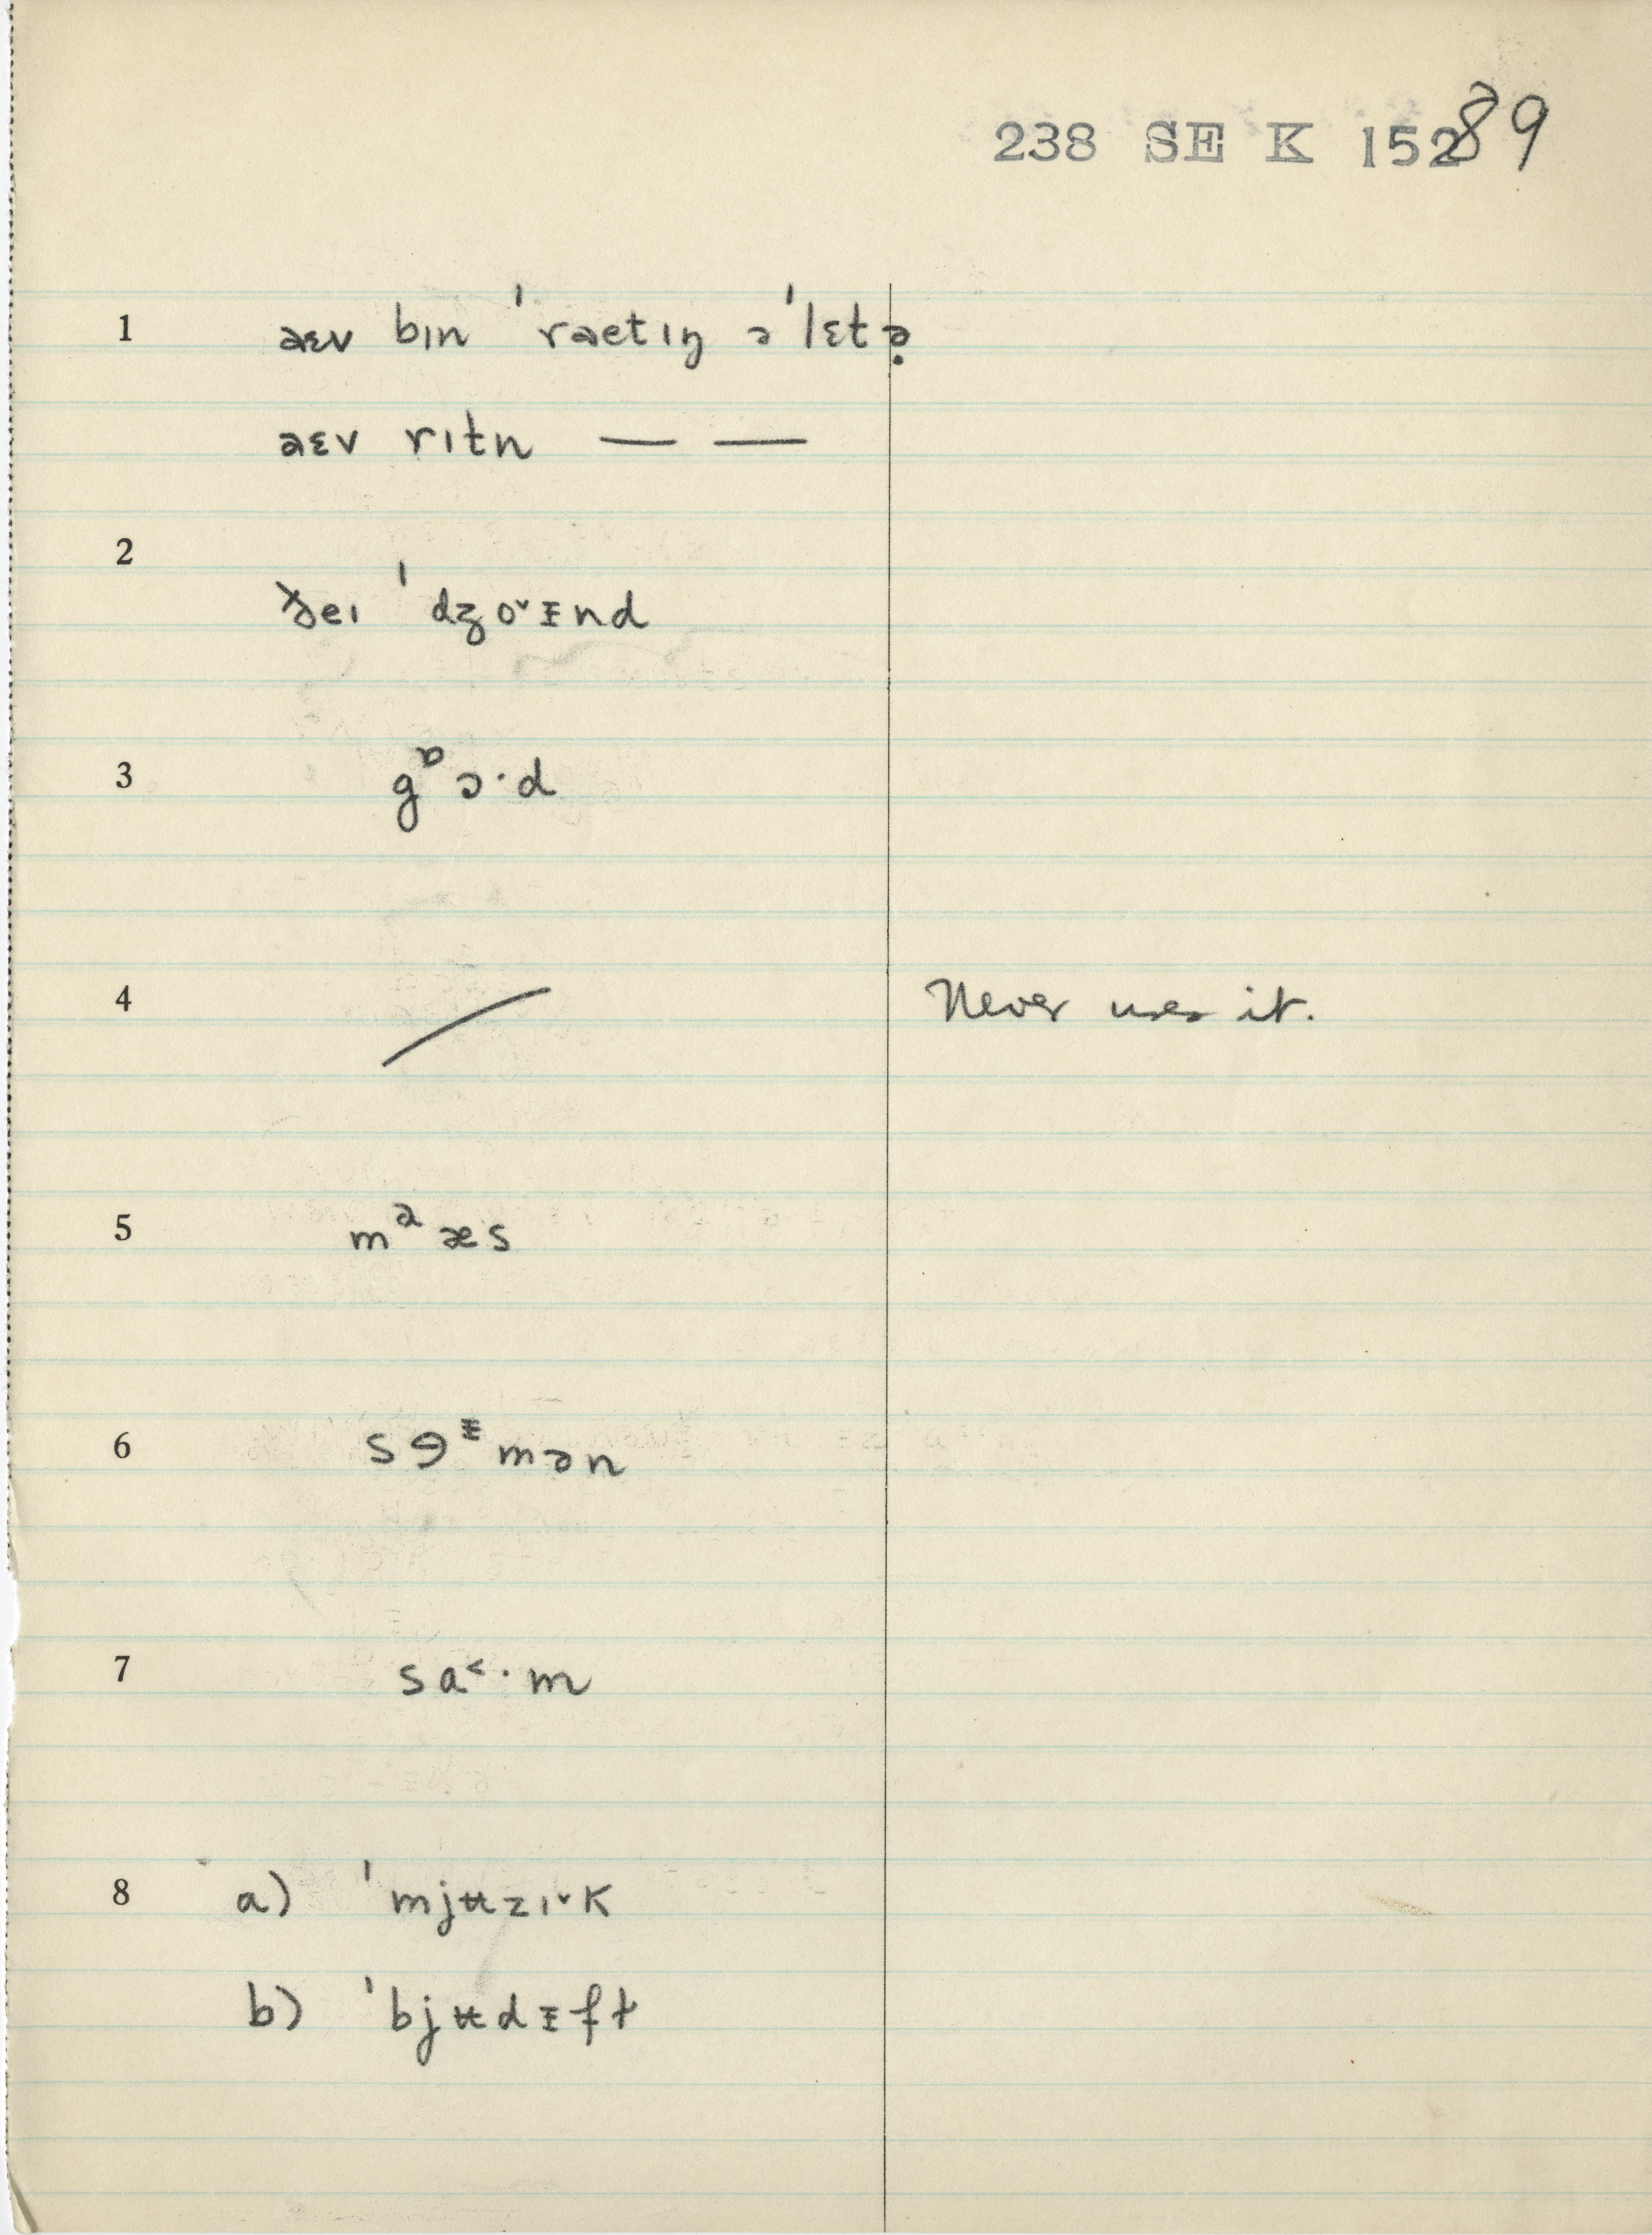 238 SE K 152 89
1 aɛv bɪn ˈraetɪŋ əˈlɛtə̣
aɛv rɪtn — —
2
ðeɪ ˈdʒo˅ᵻnd
3 gᶛɔ·d
4 / Never uses it.
5 mᵊæs
6 sɘᵻmən
7 sa˂·m
8 a) ˈmjʉzɪ˅k
b) ˈbjʉdᵻft